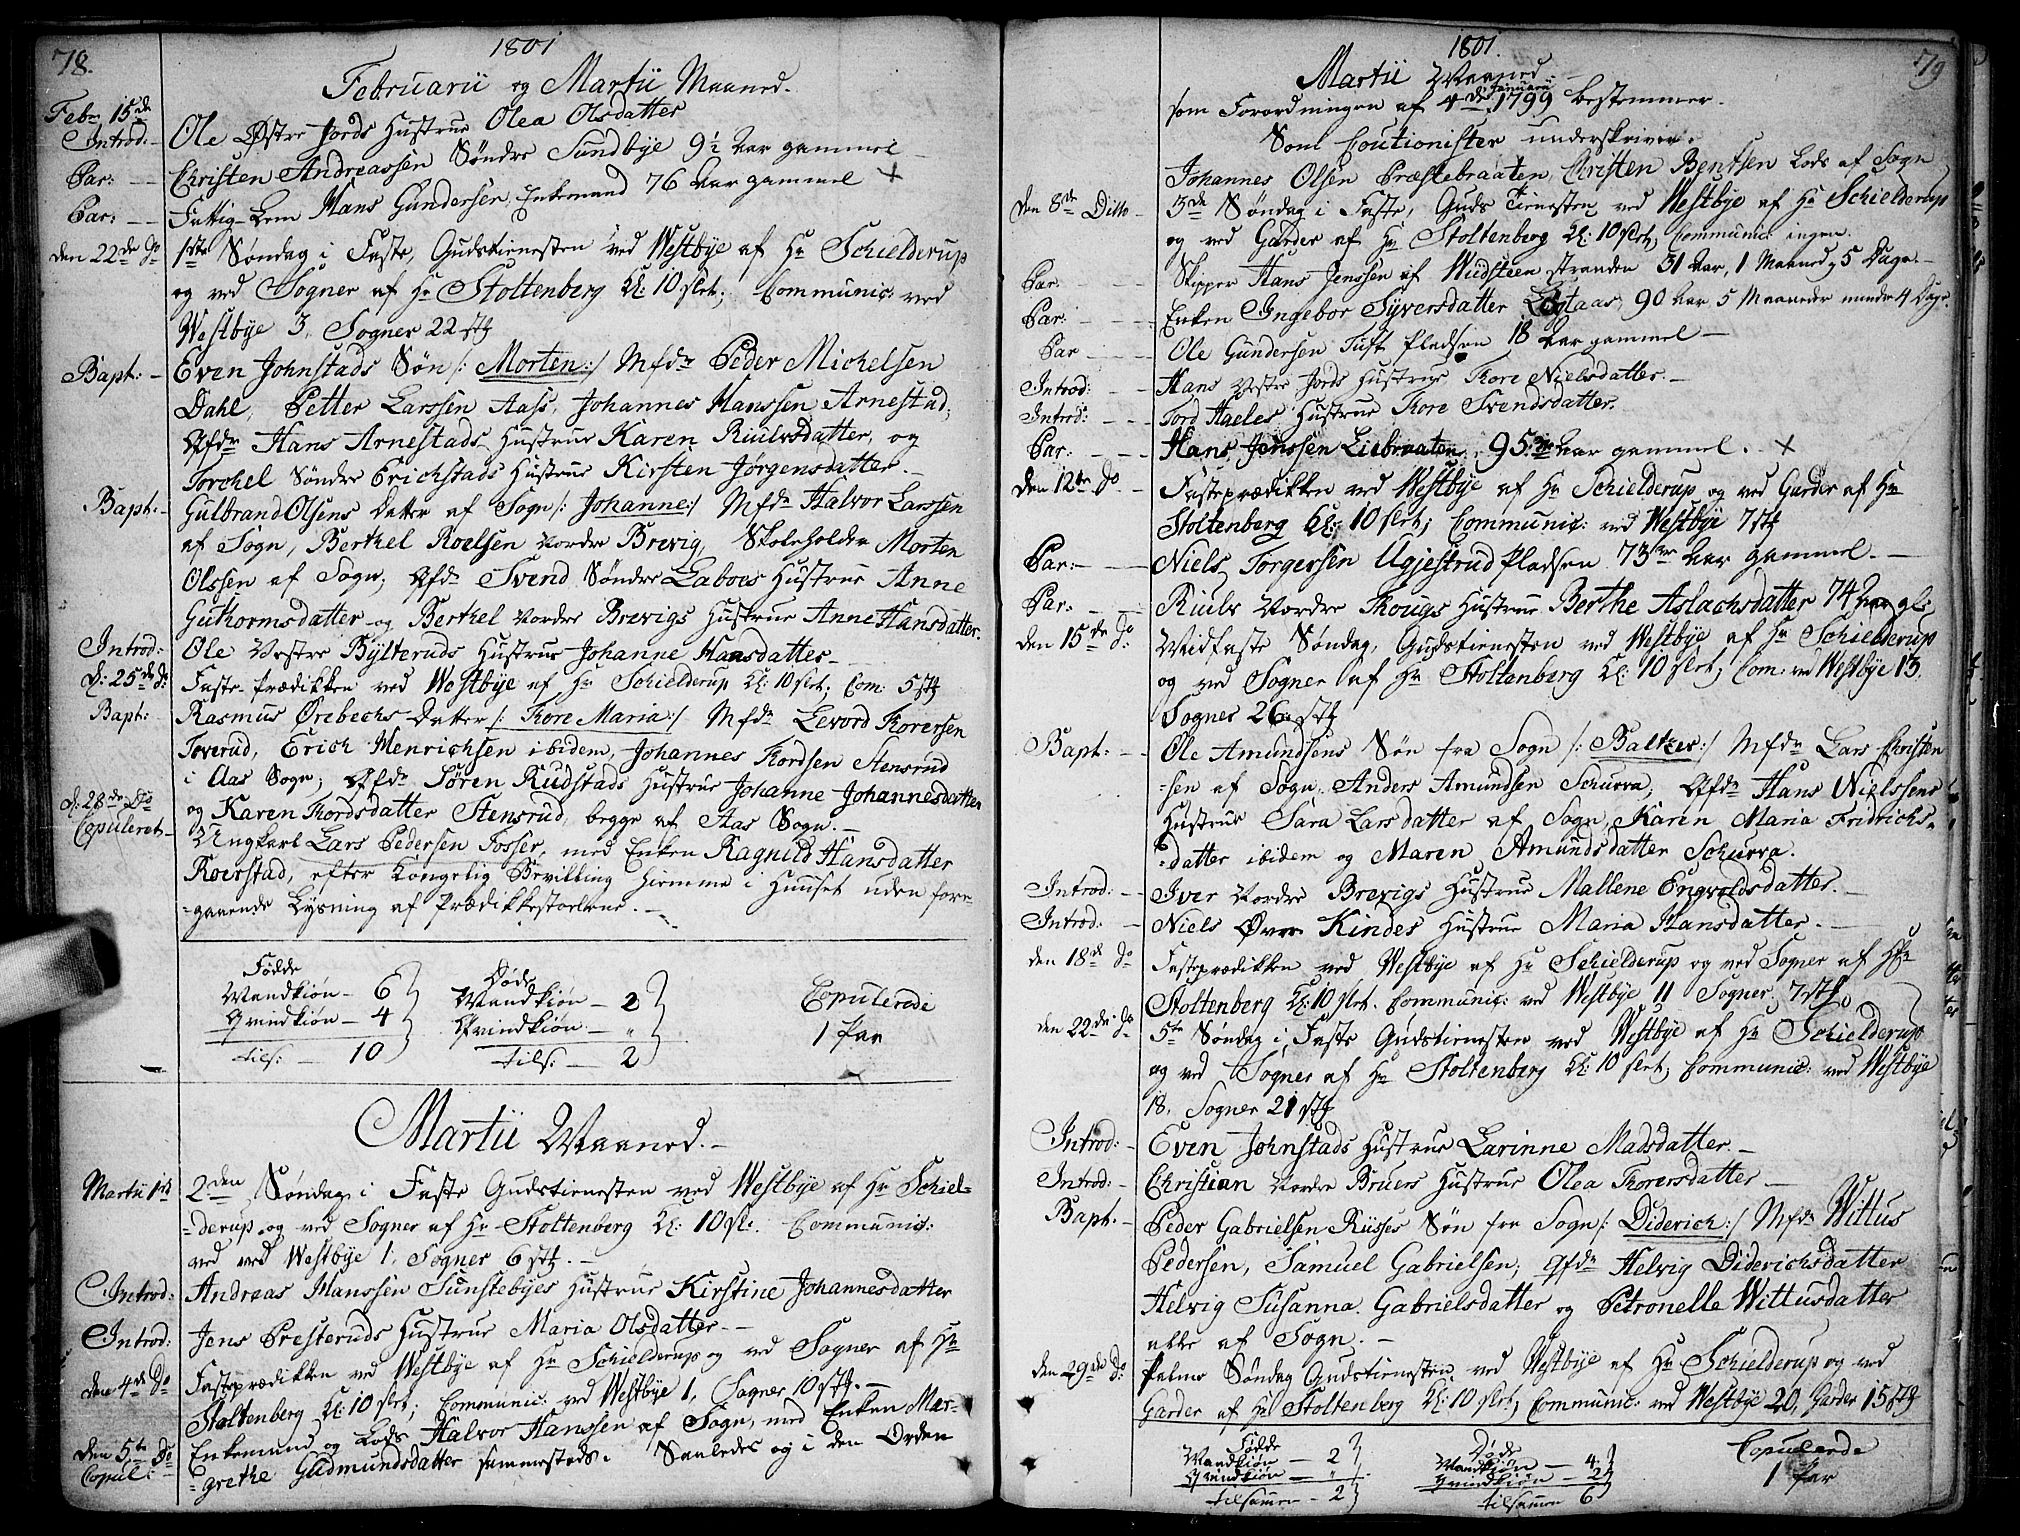 78.
1801
Februarii og Martii Maaned.
Feb: 15de
Introd:- Ole Østre Jords Hustrue Olea Olsdatter
Par: -- Christen Andreassen Søndre Sundbye 9½ Aar gammel -
Par: -- Fattig-Lem Hans Gundersen, Enkemand 76 Aar gammel +
den 22de Do 1ste Søndag i Faste, Gudstienesten ved Westbye af Hr Schielderup
og ved Sogner af Hr Stoltenberg Kl: 10 slet; Communic: ved
Westbye 3, Sogner 22 stk
Bapt: - Even Johnstads Søn /: Morten :/ Mfdr Peder Michelsen
Dahl, Petter Larssen Aass, Johannes Hanssen Arnestad,
Qfdr Hans Arnestads Hustrue Karen Riulvsdatter, og
Torchel Søndre Erichstads Hustrue Kirsten Jørgensdatter.-
Bapt:- Gulbrand Olsens Datter af Sogn /: Johanne :/ Mfdr Halvor Larssen
af Sogn, Berthel Roelsen Nordre Brevig, Skoleholder Morten
Olssen af Sogn; Qfdr Svend Søndre Laboes Hustrue Anne
Guthormsdatter og Berthel Nordre Brevigs Hustrue Anne Hansdatter.
Introd: Ole Vestre Bylteruds Hustrue Johanne Hansdatter-
D: 25de do: Faste-Prædikken ved Westbye af Hr Schielderup Kl: 10 slet; Com: 5 stk
Bapt: Rasmus Ørebechs Datter /: Thore Maria :/ Mfdr Levord Thorersen
Toverud, Erich Henrichsen ibidem, Johannes Thordsen Stensrud
i Aas Sogn; Qfdr Søren Rudstads Hustrue Johanne Johannesdatter
og Karen Thordsdatter Stensrud, begge af Aas Sogn.-
d: 28de Do
Copuleret- Ungkarl Lars Pedersen Fosser, med Enken Ragnild Hansdatter
Roerstad, efter Kongelig Bevilling hiemme i Huuset uden fore
=gaaende Lysning af Prædikkestoelene.-
Fødde
Mandkiøn - 6
Qvindkiøn - 4
tils: - 10
Døde
Mandkiøn - 2
Qvindkiøn - "
tils: - 2
Copulerede
1 Par
Martii Maaned.-
Martii 1ste 2den Søndag i Faste Gudstienesten ved Westbye af Hr Schiel=
=derup og ved Sogner af Hr Stoltenberg Kl: 10 sl:. Communic:
ved ved Westbye 1, Sogner 6 stk.-
Introd: Andreas Hanssen Sunstebyes Hustrue Kirstine Johannesdatter
Introd: Jens Presteruds Hustrue Maria Olsdatter.-
den 4de Do Fasteprædikken ved Westbye af Hr Schielderup og ved Sogner af Hr
Stoltenberg Kl: 10 slet; Communic: ved Westbye 1, Sogner 10 stk.-
den 5te Do
Copul: Enkemand og Lods Halvor Hanssen af Sogn, med Enken Mar-
=grethe Gudmundsdatter sammesteds. Saaledes og i den Orden
79
1801.
Martii Maaned.
som Forordningen af 4de Januarii 1799 bestemmer.
Som Cautionister underskriver.
Johannes Olsen Præstebraaten, Christen Bentsen Lods af Sogn
den 8de Ditto - 3de Søndag i Faste, Guds Tienesten ved Westbye af Hr Schielderup
og ved Garder af Hr Stoltenberg Kl: 10 slet; Communic: ingen.
Par: -- Skipper Hans Jenssen af Wudsteen stranden 31 Aar, 1 Maaned, 5 Dage.-
Par: -- Enken Ingebor Syversdatter Løgtaas, 90 Aar 5 Maaneder mindre 4 Dage.
Par -- Ole Gundersen Tuft Pladsen 18 Aar gammel -
Introd: - Hans Vestre Jords Hustrue Thore Nielsdatter.-
Introd: -- Tord Hgeles Hustrue Thore Svendsdatter.
Par: -- Hans Jenssen Liebraaten, 95 Aar gammel. - +
den 12te Do - Fasteprædikken ved Westbye af Hr Schielderup og ved Garder af Hr
Stoltenberg Kl: 10 slet; Communic: ved Westbye 7 stk
Par: -- Niels Torgersen Ugjestrud Pladsen 73 Aar gammel.-
Par: -- Riulv Nordre Thougs Hustrue Berthe Aslachsdatter 74 Aar gl:
den 15de Do: Midfaste Søndag, Gudstienesten ved Westbye af Hr Schielderup
og ved Sogner af Hr Stoltenberg Kl: 10 slet; Com: ved Westbye 13.
Sogner 26 stk
Bapt: -- Ole Amundsens Søn fra Sogn /: Baltzer :/ Mfdr Lars Christen
=sen af Sogn, Anders Amundsen Schurva, Qfdr Hans Nielssens
Hustrue Sara Larsdatter af Sogn, Karen Maria Fridrichs=
=datter ibidem og Maren Amundsdatter Schurva.
Introd: - Iver Nordre Brevigs Hustrue Mallene Engvoldsdatter.-
Introd: - Niels Øvre Kindes Hustrue Maria Hansdatter.-
den 18de Do Fasteprædikken ved Westbye af Hr Schielderup og ved Sogner af Hr
Stoltenberg Kl: 10 slet. Communic: ved Westbye 11 Sogner 7 stk.
den 22de Do 5te Søndag i Faste Gudstienesten ved Westbye af Hr Schielderup
og ved Sogner af Hr Stoltenberg Kl: 10 slet; Communic: ved Westbye
18. Sogner 21 stk
Introd: - Even Johnstads Hustrue Larinne Madsdatter.-
Introd: - Christian Nordre Bruers Hustrue Olea Thorersdatter -
Bapt: - Peder Gabrielsen Riises Søn fra Sogn /: Diderich :/ Mfdr Wittus
Pedersen, Samuel Gabrielsen; Qfdr Helvig Diderichsdatter
Helvig Susanna Gabrielsdatter og Petronelle Wittusdatter
alle af Sogn.-
den 29de Do: Palme Søndag Gudstienesten ved Westbye af Hr Schielderup og ved
Garder af Hr Stoltenberg Kl: 10 slet; Communic: ved Westbye 20, Garder 15 stk
Fødde
Mandkiøn - 2
Qvindkiøn - "
tilsamen - 2
Døde
Mandkiøn - 4
Qvindkiøn - 2
tilsamen 6
Copulerede
1 Par